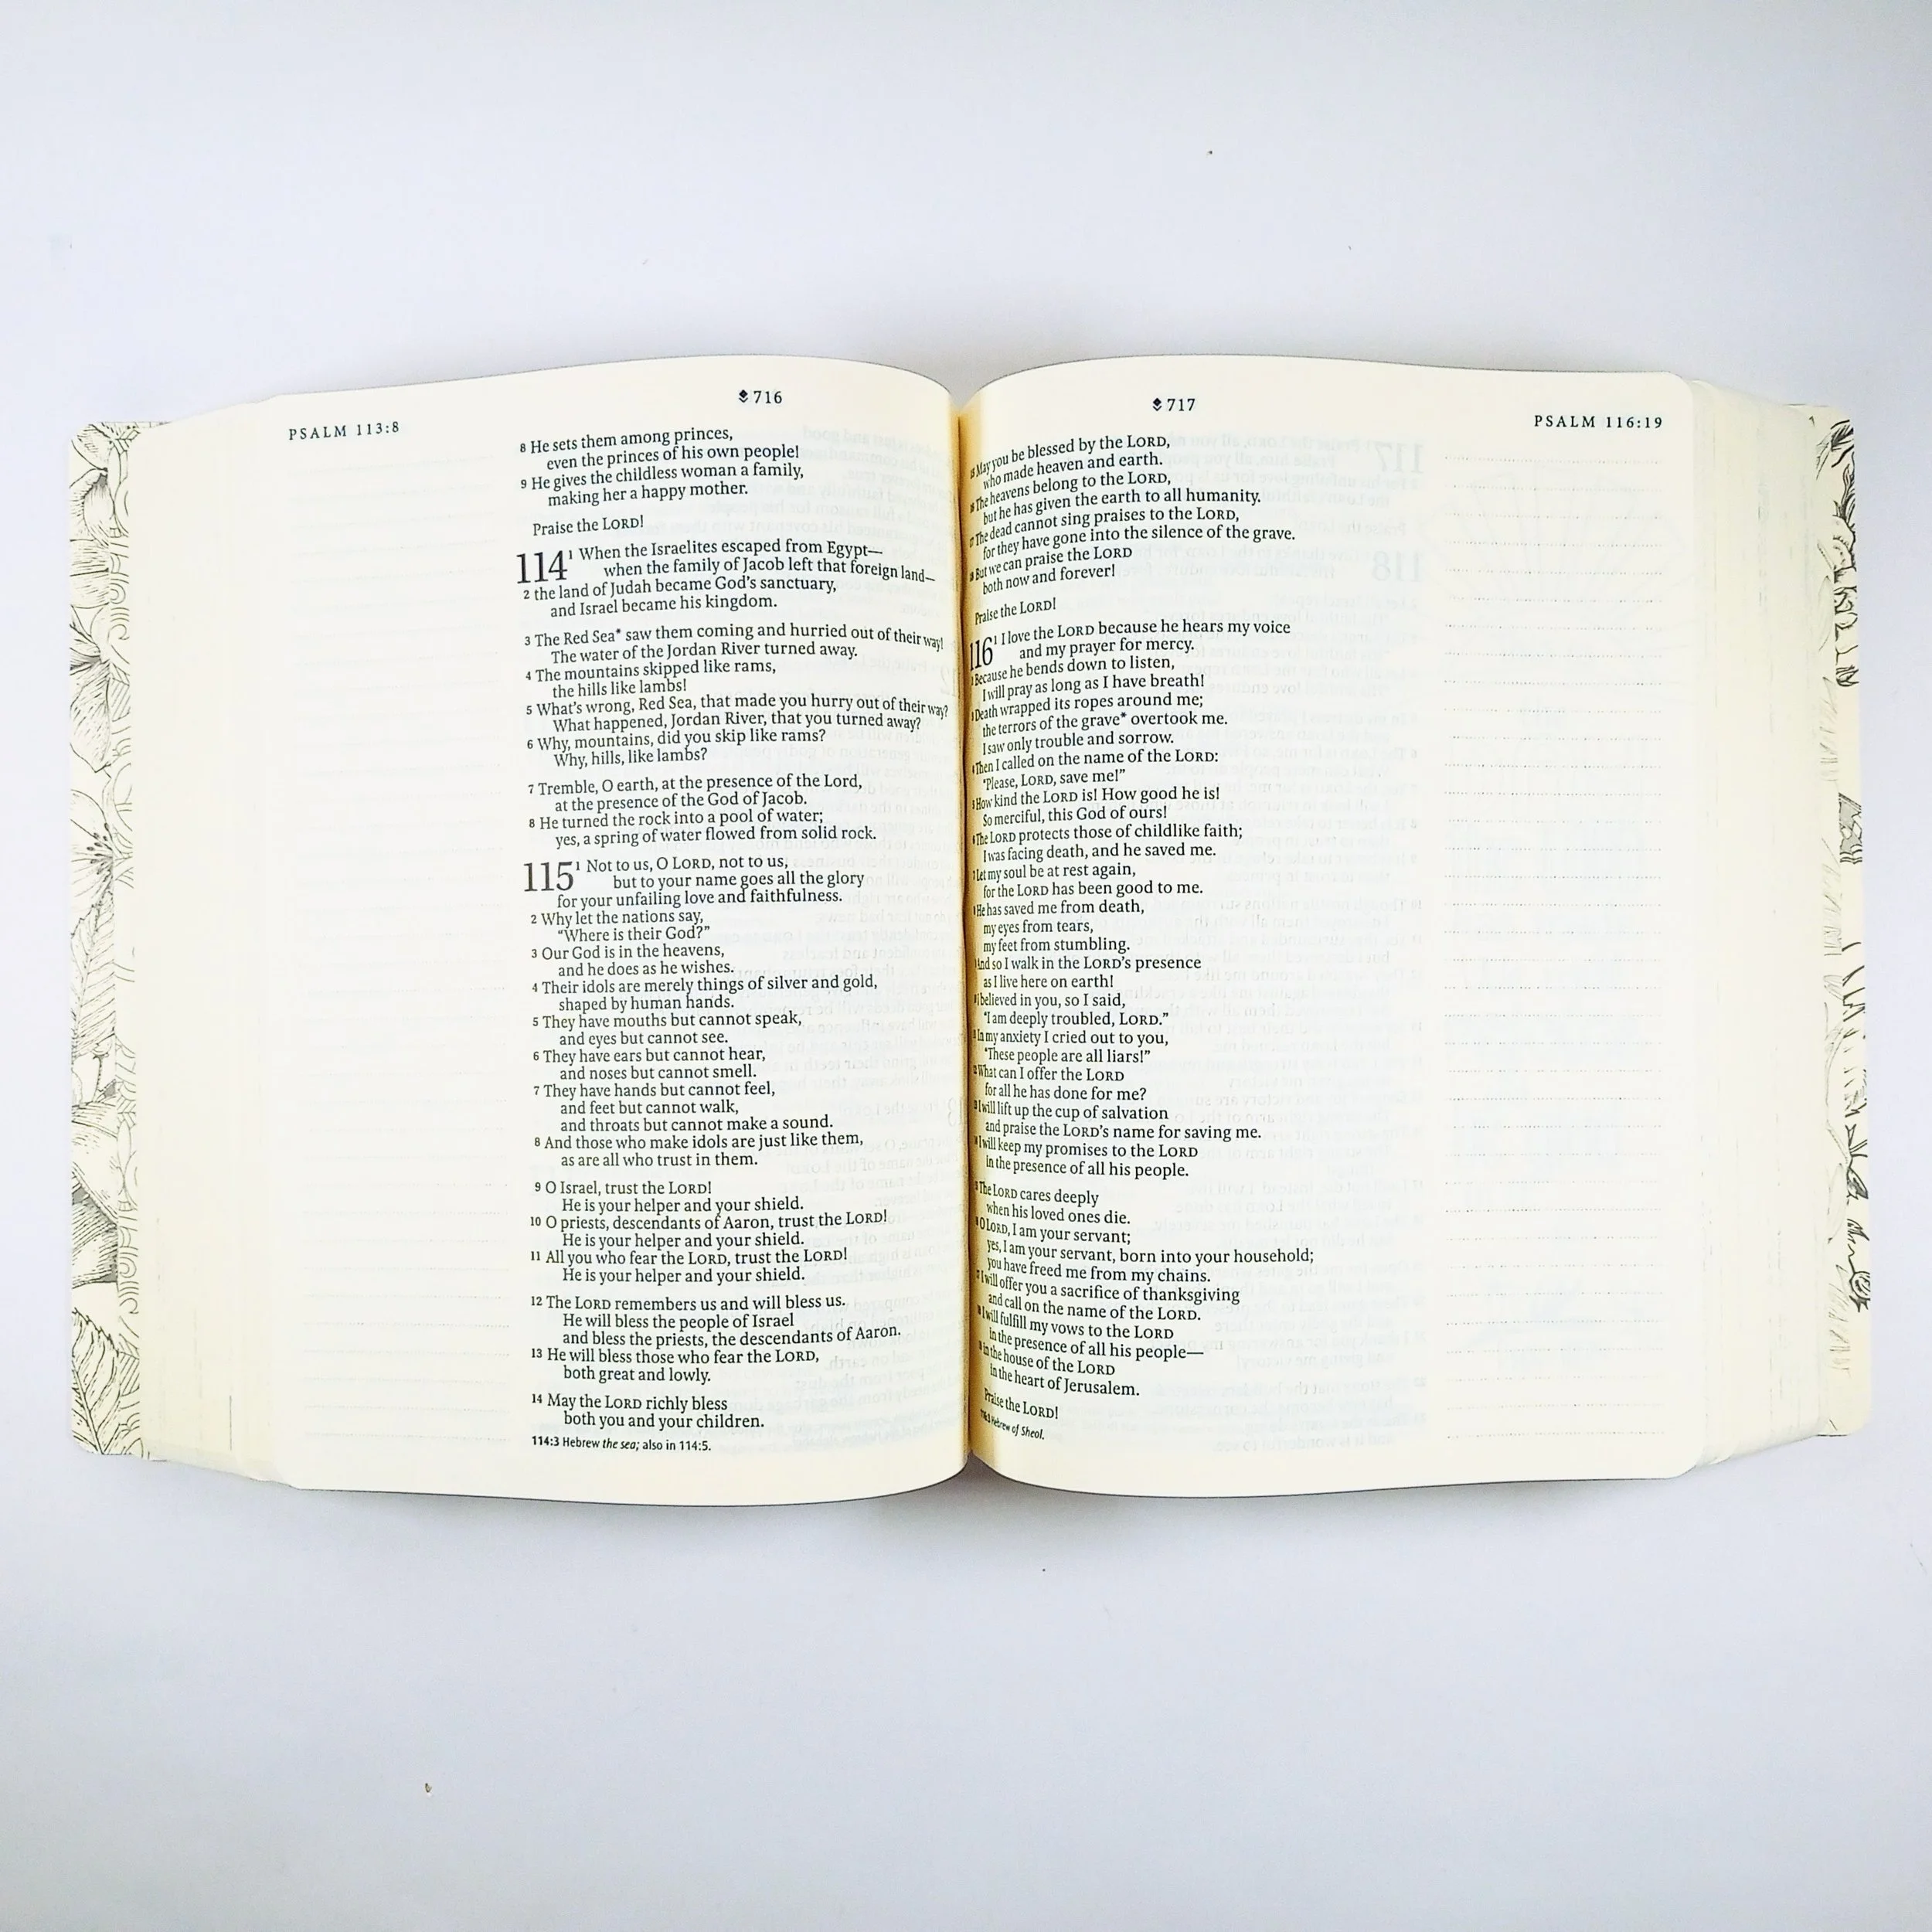 716
PSALM 113:8
8 He sets them among princes,
even the princes of his own people!
9 He gives the childless woman a family,
making her a happy mother.
Praise the LORD!
114 1 When the Israelites escaped from Egypt—
when the family of Jacob left that foreign land—
2 the land of Judah became God's sanctuary,
and Israel became his kingdom.
3 The Red Sea* saw them coming and hurried out of their way!
The water of the Jordan River turned away.
4 The mountains skipped like rams,
the hills like lambs!
5 What's wrong, Red Sea, that made you hurry out of their way?
What happened, Jordan River, that you turned away?
6 Why, mountains, did you skip like rams?
Why, hills, like lambs?
7 Tremble, O earth, at the presence of the Lord,
at the presence of the God of Jacob.
8 He turned the rock into a pool of water;
yes, a spring of water flowed from solid rock.
115 1 Not to us, O LORD, not to us,
but to your name goes all the glory
for your unfailing love and faithfulness.
2 Why let the nations say,
“Where is their God?”
3 Our God is in the heavens,
and he does as he wishes.
4 Their idols are merely things of silver and gold,
shaped by human hands.
5 They have mouths but cannot speak,
and eyes but cannot see.
6 They have ears but cannot hear,
and noses but cannot smell.
7 They have hands but cannot feel,
and feet but cannot walk,
and throats but cannot make a sound.
8 And those who make idols are just like them,
as are all who trust in them.
9 O Israel, trust the LORD!
He is your helper and your shield.
10 O priests, descendants of Aaron, trust the LORD!
He is your helper and your shield.
11 All you who fear the LORD, trust the LORD!
He is your helper and your shield.
12 The LORD remembers us and will bless us.
He will bless the people of Israel
and bless the priests, the descendants of Aaron.
13 He will bless those who fear the LORD,
both great and lowly.
14 May the LORD richly bless
both you and your children.
114:3 Hebrew the sea; also in 114:5.
717
PSALM 116:19
May you be blessed by the LORD,
who made heaven and earth.
The heavens belong to the LORD,
but he has given the earth to all humanity.
The dead cannot sing praises to the LORD,
for they have gone into the silence of the grave.
But we can praise the LORD
both now and forever!
Praise the LORD!
116 1 I love the LORD because he hears my voice
and my prayer for mercy.
Because he bends down to listen,
I will pray as long as I have breath!
Death wrapped its ropes around me;
the terrors of the grave* overtook me.
I saw only trouble and sorrow.
Then I called on the name of the LORD:
“Please, LORD, save me!”
How kind the LORD is! How good he is!
So merciful, this God of ours!
The LORD protects those of childlike faith;
I was facing death, and he saved me.
Let my soul be at rest again,
for the LORD has been good to me.
He has saved me from death,
my eyes from tears,
my feet from stumbling.
And so I walk in the LORD's presence
as I live here on earth!
I believed in you, so I said,
“I am deeply troubled, LORD.”
In my anxiety I cried out to you,
“These people are all liars!”
What can I offer the LORD
for all he has done for me?
I will lift up the cup of salvation
and praise the LORD's name for saving me.
I will keep my promises to the LORD
in the presence of all his people.
The LORD cares deeply
when his loved ones die.
O LORD, I am your servant;
yes, I am your servant, born into your household;
you have freed me from my chains.
I will offer you a sacrifice of thanksgiving
and call on the name of the LORD.
I will fulfill my vows to the LORD
in the presence of all his people—
in the house of the LORD
in the heart of Jerusalem.
Praise the LORD!
Hebrew of Sheol.